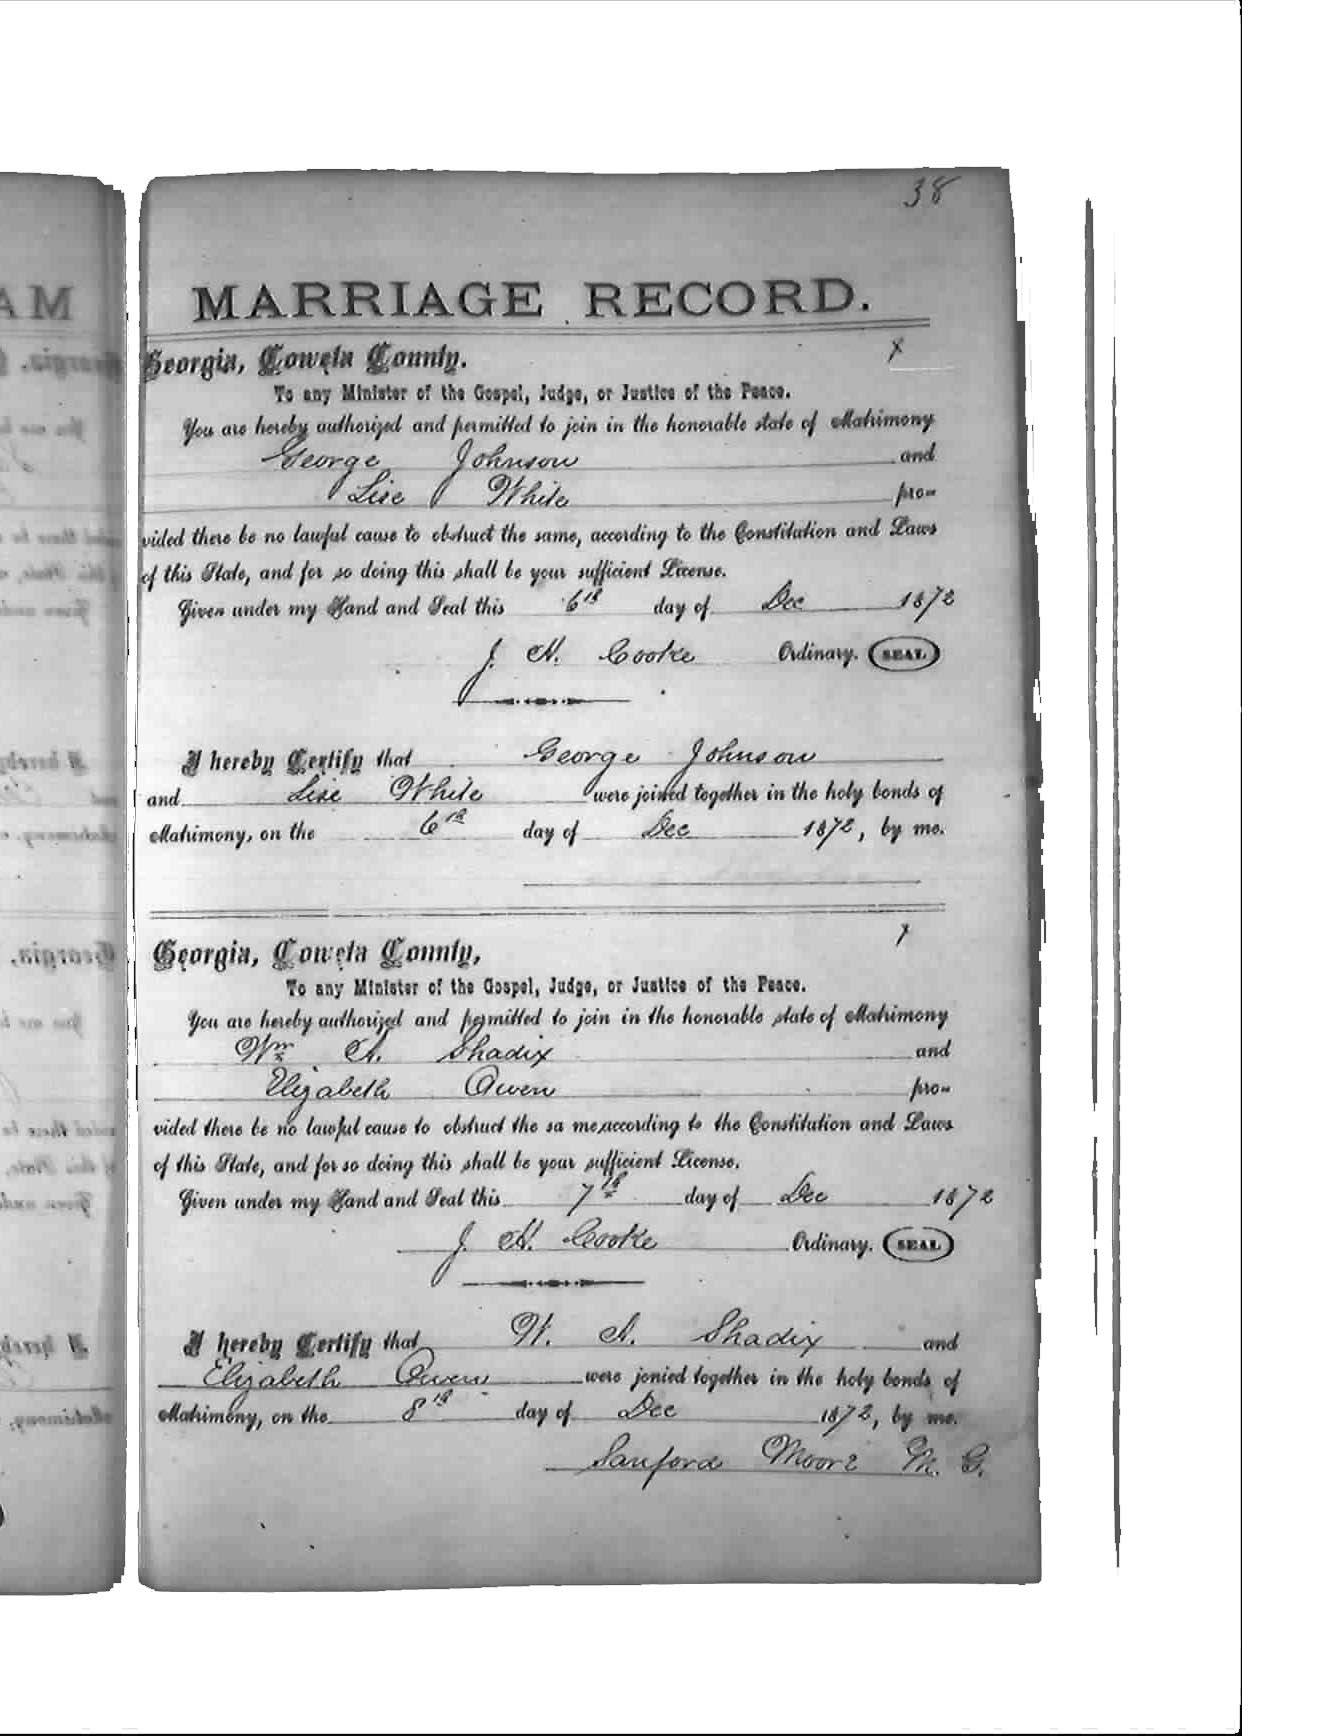 38
AM
MARRIAGE RECORD.
Georgia, Coweta County.
x
To any Minister of the Gospel, Judge, or Justice of the Peace.
You are hereby authorized and permitted to join in the honorable state of Matrimony
George Johnson and
Lise White pro-
vided there be no lawful cause to obstruct the same, according to the Constitution and Laws
of this State, and for so doing this shall be your sufficient License.
Given under my Hand and Seal this 6th day of Dec 1872
J. H. Cooke Ordinary. SEAL
I hereby Certify that George Johnson
and Lise White were joined together in the holy bonds of
Matrimony, on the 6th day of Dec 1872, by me.
Georgia, Coweta County,
x
To any Minister of the Gospel, Judge, or Justice of the Peace.
You are hereby authorized and permitted to join in the honorable state of Matrimony
Wm A. Shadix and
Elizabeth Owen pro-
vided there be no lawful cause to obstruct the sa me,according to the Constitution and Laws
of this State, and for so doing this shall be your sufficient License.
Given under my Hand and Seal this 7th day of Dec 1872
J. H. Cooke Ordinary. SEAL
I hereby Certify that W. A. Shadix and
Elizabeth Owen were jonied together in the holy bonds of
Matrimony, on the 8th day of Dec 1872, by me.
Sanford Moore M. G.